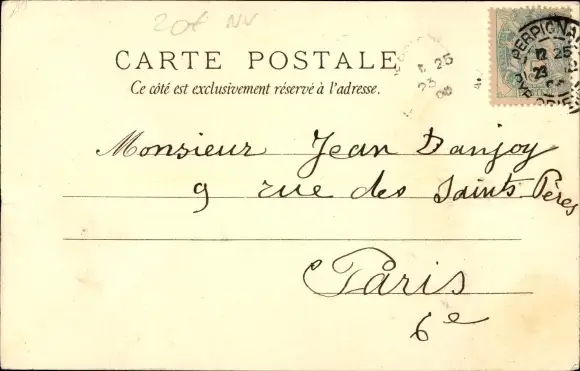 20€ NV
CARTE POSTALE
Ce côté est exclusivement réservé à l'adresse.
PERPIGNAN
12 25
23
25
23
Monsieur Jean Danjoy
9 rue des Saints Pères
Paris
6e